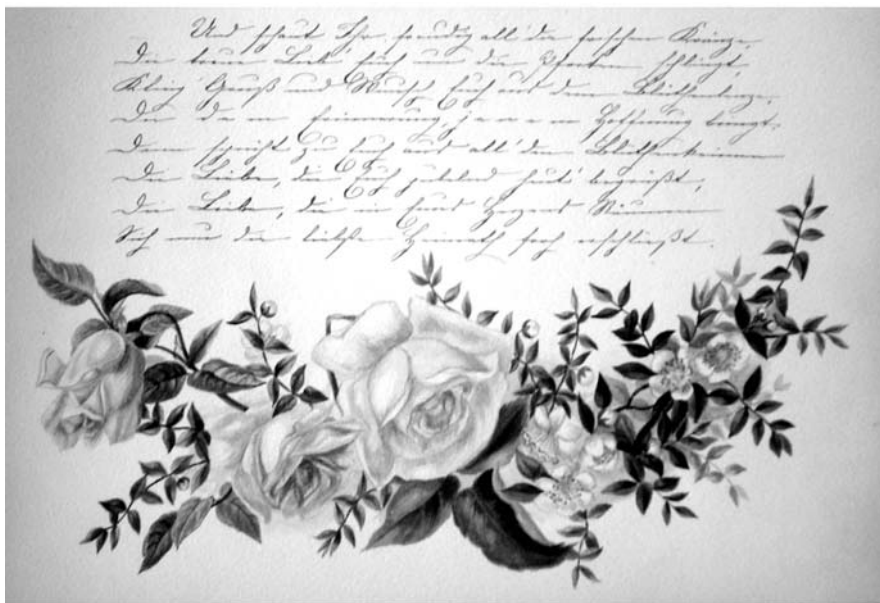 Und schaut Ihr freudig all' die frischen Kränze,
Die treue Lieb' Euch um die schlingt,
Kling' Gruß und Wunsch Euch aus dem Blüthenlenze,
Der dem Erinnerung, jenem Hoffnung bringt.
Dann spricht zu Euch aus all' den Blüthenkeimen
Die Liebe, die Euch jubelnd heut' begrüßt,
Die Liebe, die in Eures Herzens Räumen
Sich nun die liebste Heimath froh erschließt.